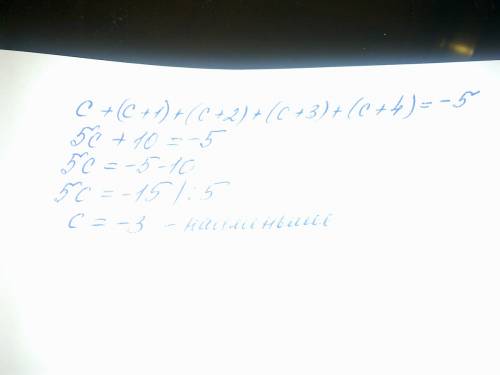 c+(c+1)+(c+2)+(c+3)+(c+4)=-5
5c+10=-5
5c=-5-10
5c=-15 |:5
c=-3 - наименьшее